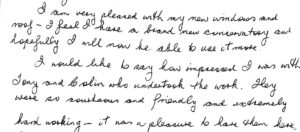 I am very pleased with my new windows and
roof - I feel I have a brand new conservatory and
hopefully I will now be able to use it more
I would like to say how impressed I was with
Tony and Colin who undertook the work. They
were so courteous and friendly and extremely
hard working - it was a pleasure to have them here